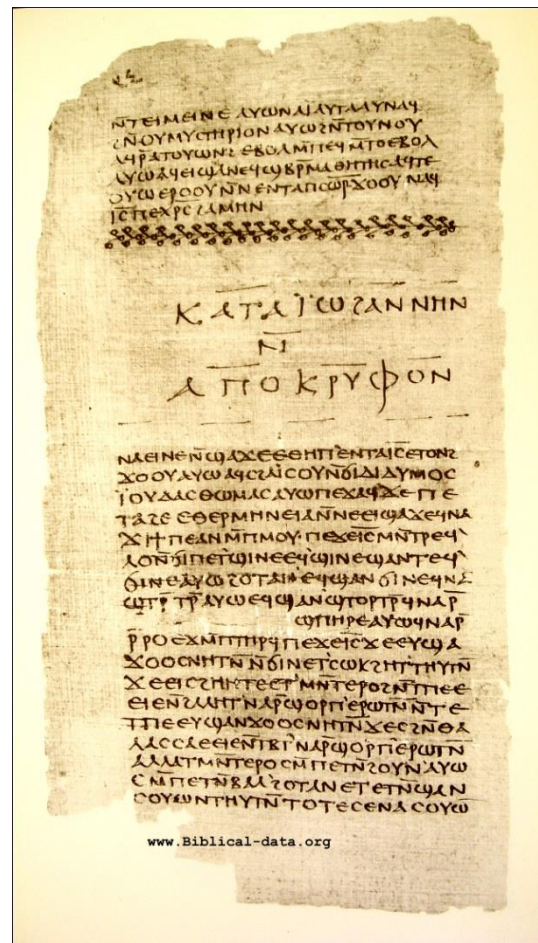 ⲛ̄ⲧⲉⲓⲙⲉⲓⲛⲉⲁⲩⲱⲛⲁⲓⲁⲩⲧⲁⲁⲩⲛⲁϥ
ϩⲛ̄ⲟⲩⲙⲩⲥⲧⲏⲣⲓⲟⲛⲁⲩⲱϩⲛ̄ⲧⲟⲩⲛⲟⲩ
ⲁϥⲣ̄ⲁⲧⲟⲩⲱⲛϩⲉⲃⲟⲗⲙ̄ⲡⲉϥⲙ̄ⲧⲟⲉⲃⲟⲗ
ⲁⲩⲱⲁϥⲉⲓϣⲁⲛⲉϥϣⲃⲣ̄ⲙⲁⲑⲏⲧⲏⲥⲁϥⲧⲉ
ⲟⲩⲱⲉⲣⲟⲟⲩⲛ̄ⲛⲉⲛⲧⲁⲡⲥⲱⲣ̄ϫⲟⲟⲩⲛⲁϥ
ⲓ̄ⲥ̄ⲡⲉⲭⲣ̄ⲥ̄ϩⲁⲙⲏⲛ
ⲕⲁⲧⲁⲓ̈ⲱϩⲁⲛⲛⲏⲛ
ⲛ̄
ⲁⲡⲟⲕⲣⲩⲫⲟⲛ
ⲛⲁⲉⲓⲛⲉⲛ̄ϣⲁϫⲉⲉⲑⲏⲡ`ⲉⲛⲧⲁⲓ̄ⲥ̄ⲉⲧⲟⲛϩ
ϫⲟⲟⲩⲁⲩⲱⲁϥⲥϩⲁⲓ̈ⲥⲟⲩⲛ̄ϭⲓⲇⲓⲇⲩⲙⲟⲥ
ⲓ̈ⲟⲩⲇⲁⲥⲑⲱⲙⲁⲥⲁⲩⲱⲡⲉϫⲁϥϫⲉⲡⲉ
ⲧⲁϩⲉⲉⲑⲉⲣⲙⲏⲛⲉⲓⲁⲛ̄ⲛⲉⲉⲓϣⲁϫⲉϥⲛⲁ
ϫⲓϯⲡⲉⲁⲛⲙ̄ⲡⲙⲟⲩ·ⲡⲉϫⲉⲓ̄ⲥ̄ⲙⲛ̄ⲧⲣⲉϥ`
ⲗⲟⲛ̄ϭⲓⲡⲉⲧϣⲓⲛⲉⲉϥϣⲓⲛⲉϣⲁⲛⲧⲉϥ`
ϭⲓⲛⲉⲁⲩⲱϩⲟⲧⲁⲛⲉϥϣⲁⲛϭⲓⲛⲉϥⲛⲁ
ϣⲧⲣ̄ⲧⲣ̄ⲁⲩⲱⲉϥϣⲁⲛϣⲧⲟⲣⲧⲣ̄ϥⲛⲁⲣ̄
ϣⲡⲏⲣⲉⲁⲩⲱϥⲛⲁⲣ̄
ⲣ̄ⲣⲟⲉϫⲙ̄ⲡⲧⲏⲣϥ̄ⲡⲉϫⲉⲓ̄ⲥ̄ϫⲉⲉⲩϣⲁ
ϫⲟⲟⲥⲛⲏⲧⲛ̄ⲛ̄ϭⲓⲛⲉⲧ`ⲥⲱⲕϩⲏⲧ`ⲧⲏⲩⲧⲛ̄
ϫⲉⲉⲓⲥϩⲏⲏⲧⲉⲉⲧ`ⲙⲛ̄ⲧⲉⲣⲟϩⲛ̄ⲧⲡⲉⲉ
ⲉⲓⲉⲛ̄ϩⲁⲗⲏⲧ`ⲛⲁⲣ̄ϣⲟⲣⲡ`ⲉⲣⲱⲧⲛ̄ⲛ̄ⲧⲉ
ⲧⲡⲉⲉⲩϣⲁⲛϫⲟⲟⲥⲛⲏⲧⲛ̄ϫⲉⲥϩⲛ̄ⲑⲁ
ⲗⲁⲥⲥⲁⲉⲉⲓⲉⲛ̄ⲧⲃⲧ`ⲛⲁⲣ̄ϣⲟⲣⲡ`ⲉⲣⲱⲧⲛ̄
ⲁⲗⲗⲁⲧⲙⲛ̄ⲧⲉⲣⲟⲥⲙ̄ⲡⲉⲧⲛ̄ϩⲟⲩⲛ`ⲁⲩⲱ
ⲥⲙ̄ⲡⲉⲧⲛ̄ⲃⲁⲗ`ϩⲟⲧⲁⲛⲉⲧⲉⲧⲛ̄ϣⲁⲛ
ⲥⲟⲩⲱⲛⲧⲏⲩⲧⲛ̄ⲧⲟⲧⲉⲥⲉⲛⲁⲥⲟⲩⲱ
www.Biblical-data.org